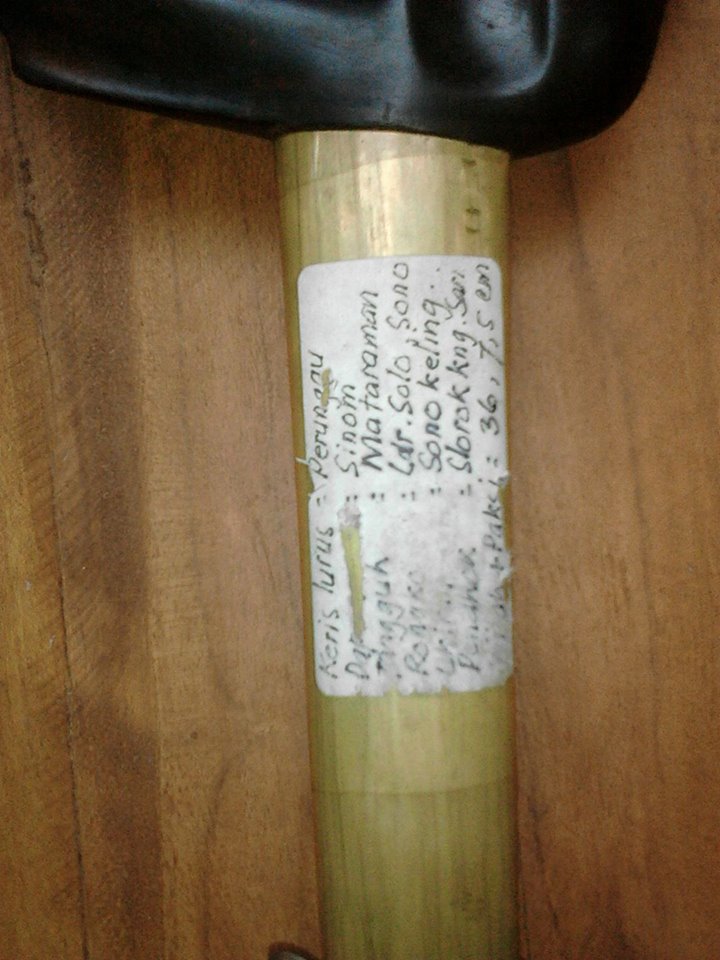 Keris lurus : Perunggu
: Sinom
Tangguh : Mataraman
: Ldr. Solo, Sono
: Sono keling..
Pendhok : Slorok kng. Sari
+ Paksi : 36,7,5 cm